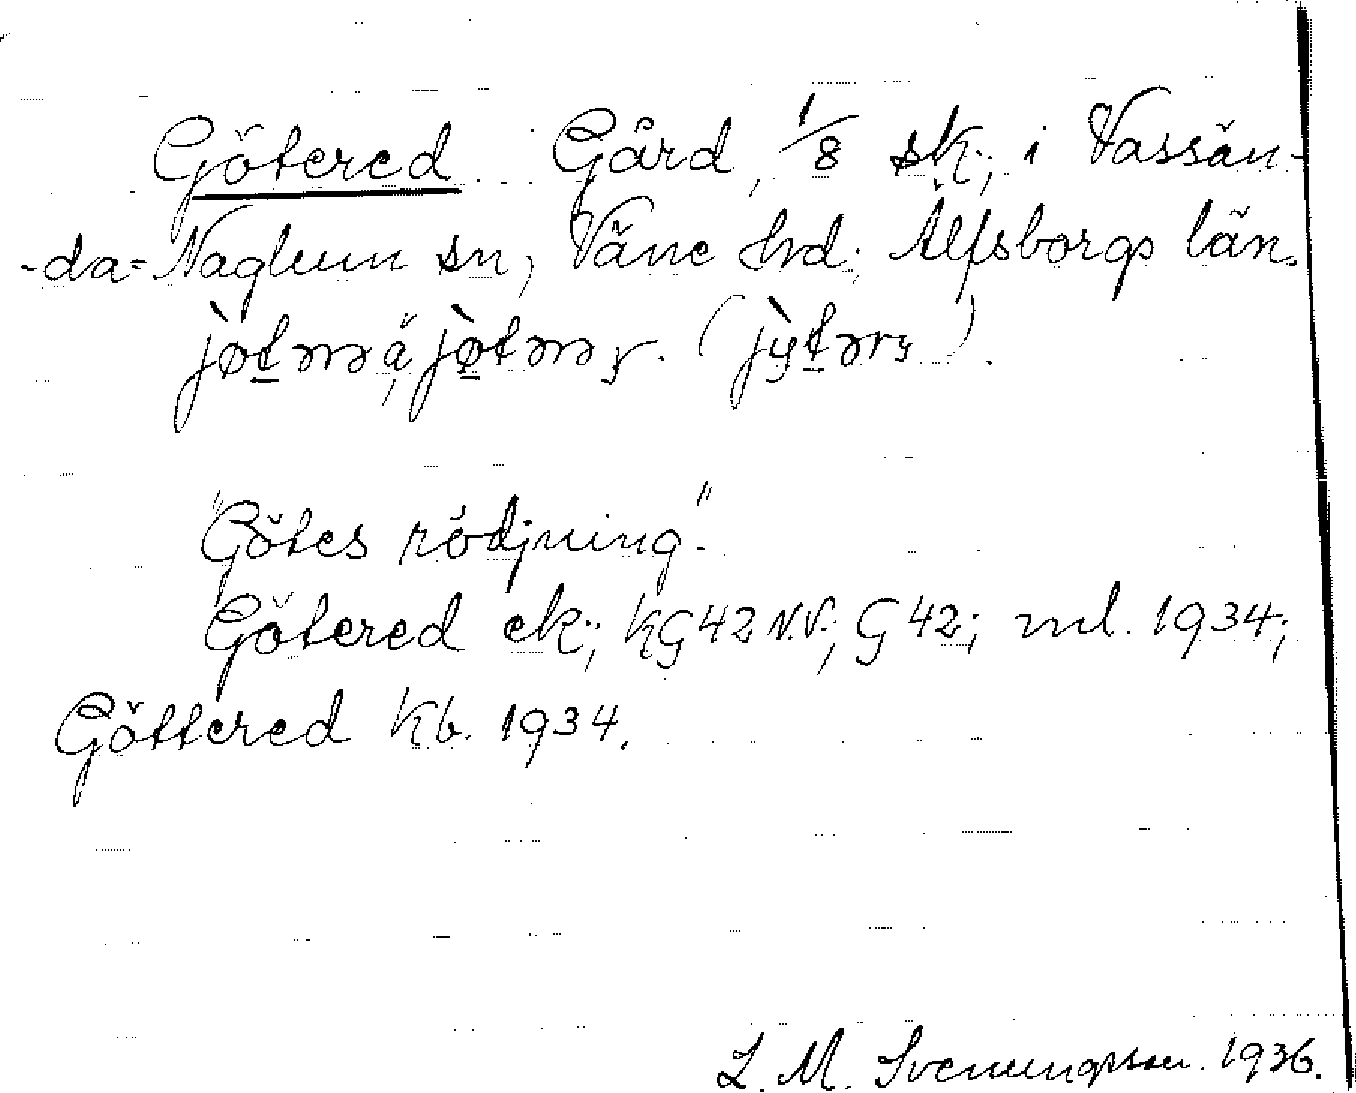 Götered. Gård, 1/8 sk., i Vassän-
-da-Naglum sn, Väne hrd. Älfsborgs län.
"Götes rödjning".
Götered ek; KG42 N.V.; G42; ml. 1934;
Göttered Kb. 1934.
L. M. Svenungsson. 1936.